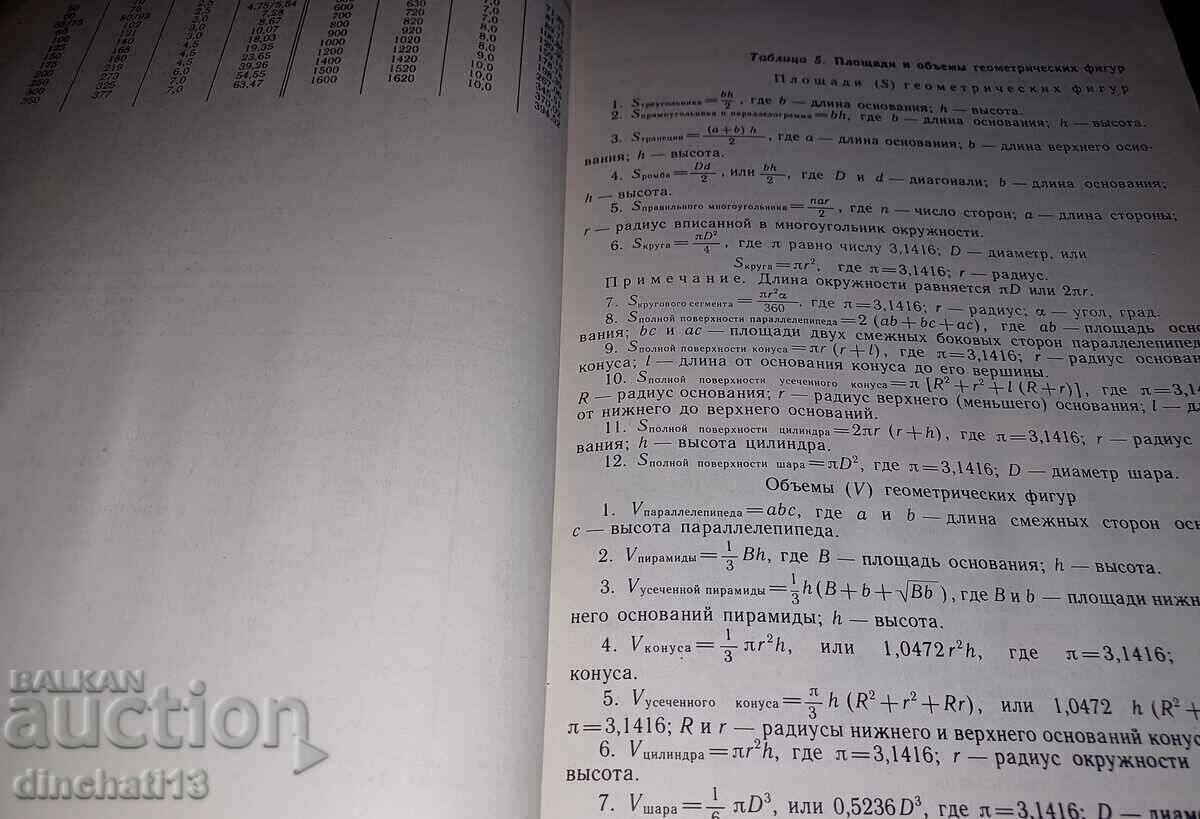 50
4,75/5,54
600
630
7,0
80/93
2,5
7,28
700
720
7,0
65/75
102
3,0
8,67
800
820
7,0
80
121
3,0
10,07
900
920
8,0
100
140
4,5
18,03
1000
1020
8,0
125
168
4,5
19,35
1200
1220
9,0
150
180
4,5
23,65
1400
1420
10,0
175
219
6,0
39,26
1500
1520
10,0
200
273
7,0
54,55
1600
1620
250
325
63,47
300
377
350
Таблица 5. Площади и объемы геометрических фигур
Площади (S) геометрических фигур
1. Sтреугольника=bh/2, где b — длина основания; h — высота.
2. Sпрямоугольника и параллелограмма=bh, где b — длина основания; h — высота.
3. Sтрапеции=(a+b) h/2, где a — длина основания; b — длина верхнего осно-
вания; h — высота.
4. Sромба=Dd/2, или bh/2, где D и d — диагонали; b — длина основания;
h — высота.
5. Sправильного многоугольника=nar/2, где n — число сторон; a — длина стороны;
r — радиус вписанной в многоугольник окружности.
6. Sкруга=πD²/4, где π равно числу 3,1416; D — диаметр, или
Sкруга=πr², где π=3,1416; r — радиус.
Примечание. Длина окружности равняется πD или 2πr.
7. Sкругового сегмента=πr²α/360, где π=3,1416; r — радиус; α — угол, град.
8. Sполной поверхности параллелепипеда=2 (ab+bc+ac), где ab — площадь осно
вания; bc и ac — площади двух смежных боковых сторон параллелепипед
9. Sполной поверхности конуса=πr (r+l), где π=3,1416; r — радиус основан
конуса; l — длина от основания конуса до его вершины.
10. Sполной поверхности усеченного конуса=π [R²+r²+l (R+r)], где π=3,14
R — радиус основания; r — радиус верхнего (меньшего) основания; l — дл
от нижнего до верхнего оснований.
11. Sполной поверхности цилиндра=2πr (r+h), где π=3,1416; r — радиус
вания; h — высота цилиндра.
12. Sполной поверхности шара=πD², где π=3,1416; D — диаметр шара.
Объемы (V) геометрических фигур
1. Vпараллелепипеда=abc, где a и b — длина смежных сторон осн
c — высота параллелепипеда.
2. Vпирамиды=1/3 Bh, где B — площадь основания; h — высота.
3. Vусеченной пирамиды=1/3 h(B+b+√Bb), где B и b — площади нижн
него оснований пирамиды; h — высота.
4. Vконуса=1/3 πr²h, или 1,0472r²h, где π=3,1416;
конуса.
5. Vусеченного конуса=π/3 h (R²+r²+Rr), или 1,0472 h (R²+
π=3,1416; R и r — радиусы нижнего и верхнего оснований конус
6. Vцилиндра=πr²h, где π=3,1416; r — радиус окружности
высота.
7. Vшара=1/6 πD³, или 0,5236D³, где π=3,1416; D — диаметр
BALKAN
auction
dinchati13